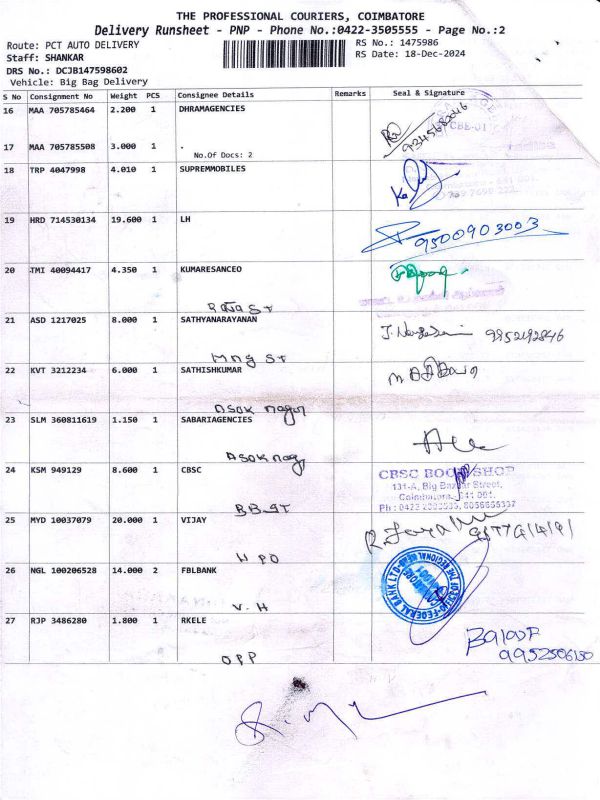 THE PROFESSIONAL COURIERS, COIMBATORE
Delivery Runsheet - PNP - Phone No.:0422-3505555 - Page No.:2
Route: PCT AUTO DELIVERY
RS No.: 1475986
Staff: SHANKAR
RS Date: 18-Dec-2024
DRS No.: DCJB147598602
Vehicle: Big Bag Delivery
S No Consignment No Weight PCS Consignee Details Remarks Seal & Signature
16 MAA 705785464 2.200 1 DHRAMAGENCIES
17 MAA 705785508 3.000 1 .
No.Of Docs: 2
18 TRP 4047998 4.010 1 SUPREMMOBILES
19 HRD 714530134 19.600 1 LH
9500903003
20 TMI 40094417 4.350 1 KUMARESANCEO
21 ASD 1217025 8.000 1 SATHYANARAYANAN
9952192846
MNG ST
22 KVT 3212234 6.000 1 SATHISHKUMAR
ASOK nagar
23 SLM 360811619 1.150 1 SABARIAGENCIES
ASOK nag
24 KSM 949129 8.600 1 CBSC
CBSC BOOK SHOP
131-A, Big Bazaar Street,
Coimbatore, 641 001.
BB-ST
25 MYD 10037079 20.000 1 VIJAY
HPO
26 NGL 100206528 14.000 2 FBLBANK
V.H
27 RJP 3486280 1.800 1 RKELE
9952506150
OPP